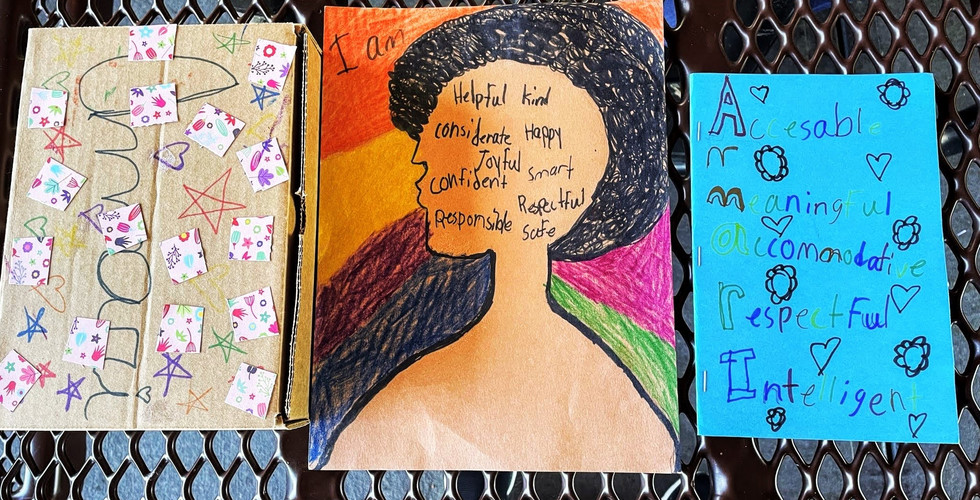 I am
Helpful kind
considerate Happy
Joyful
confident smart
Respectful
Responsible safe
Accesable
meaningful
accomonodative
respectful
Intelligent